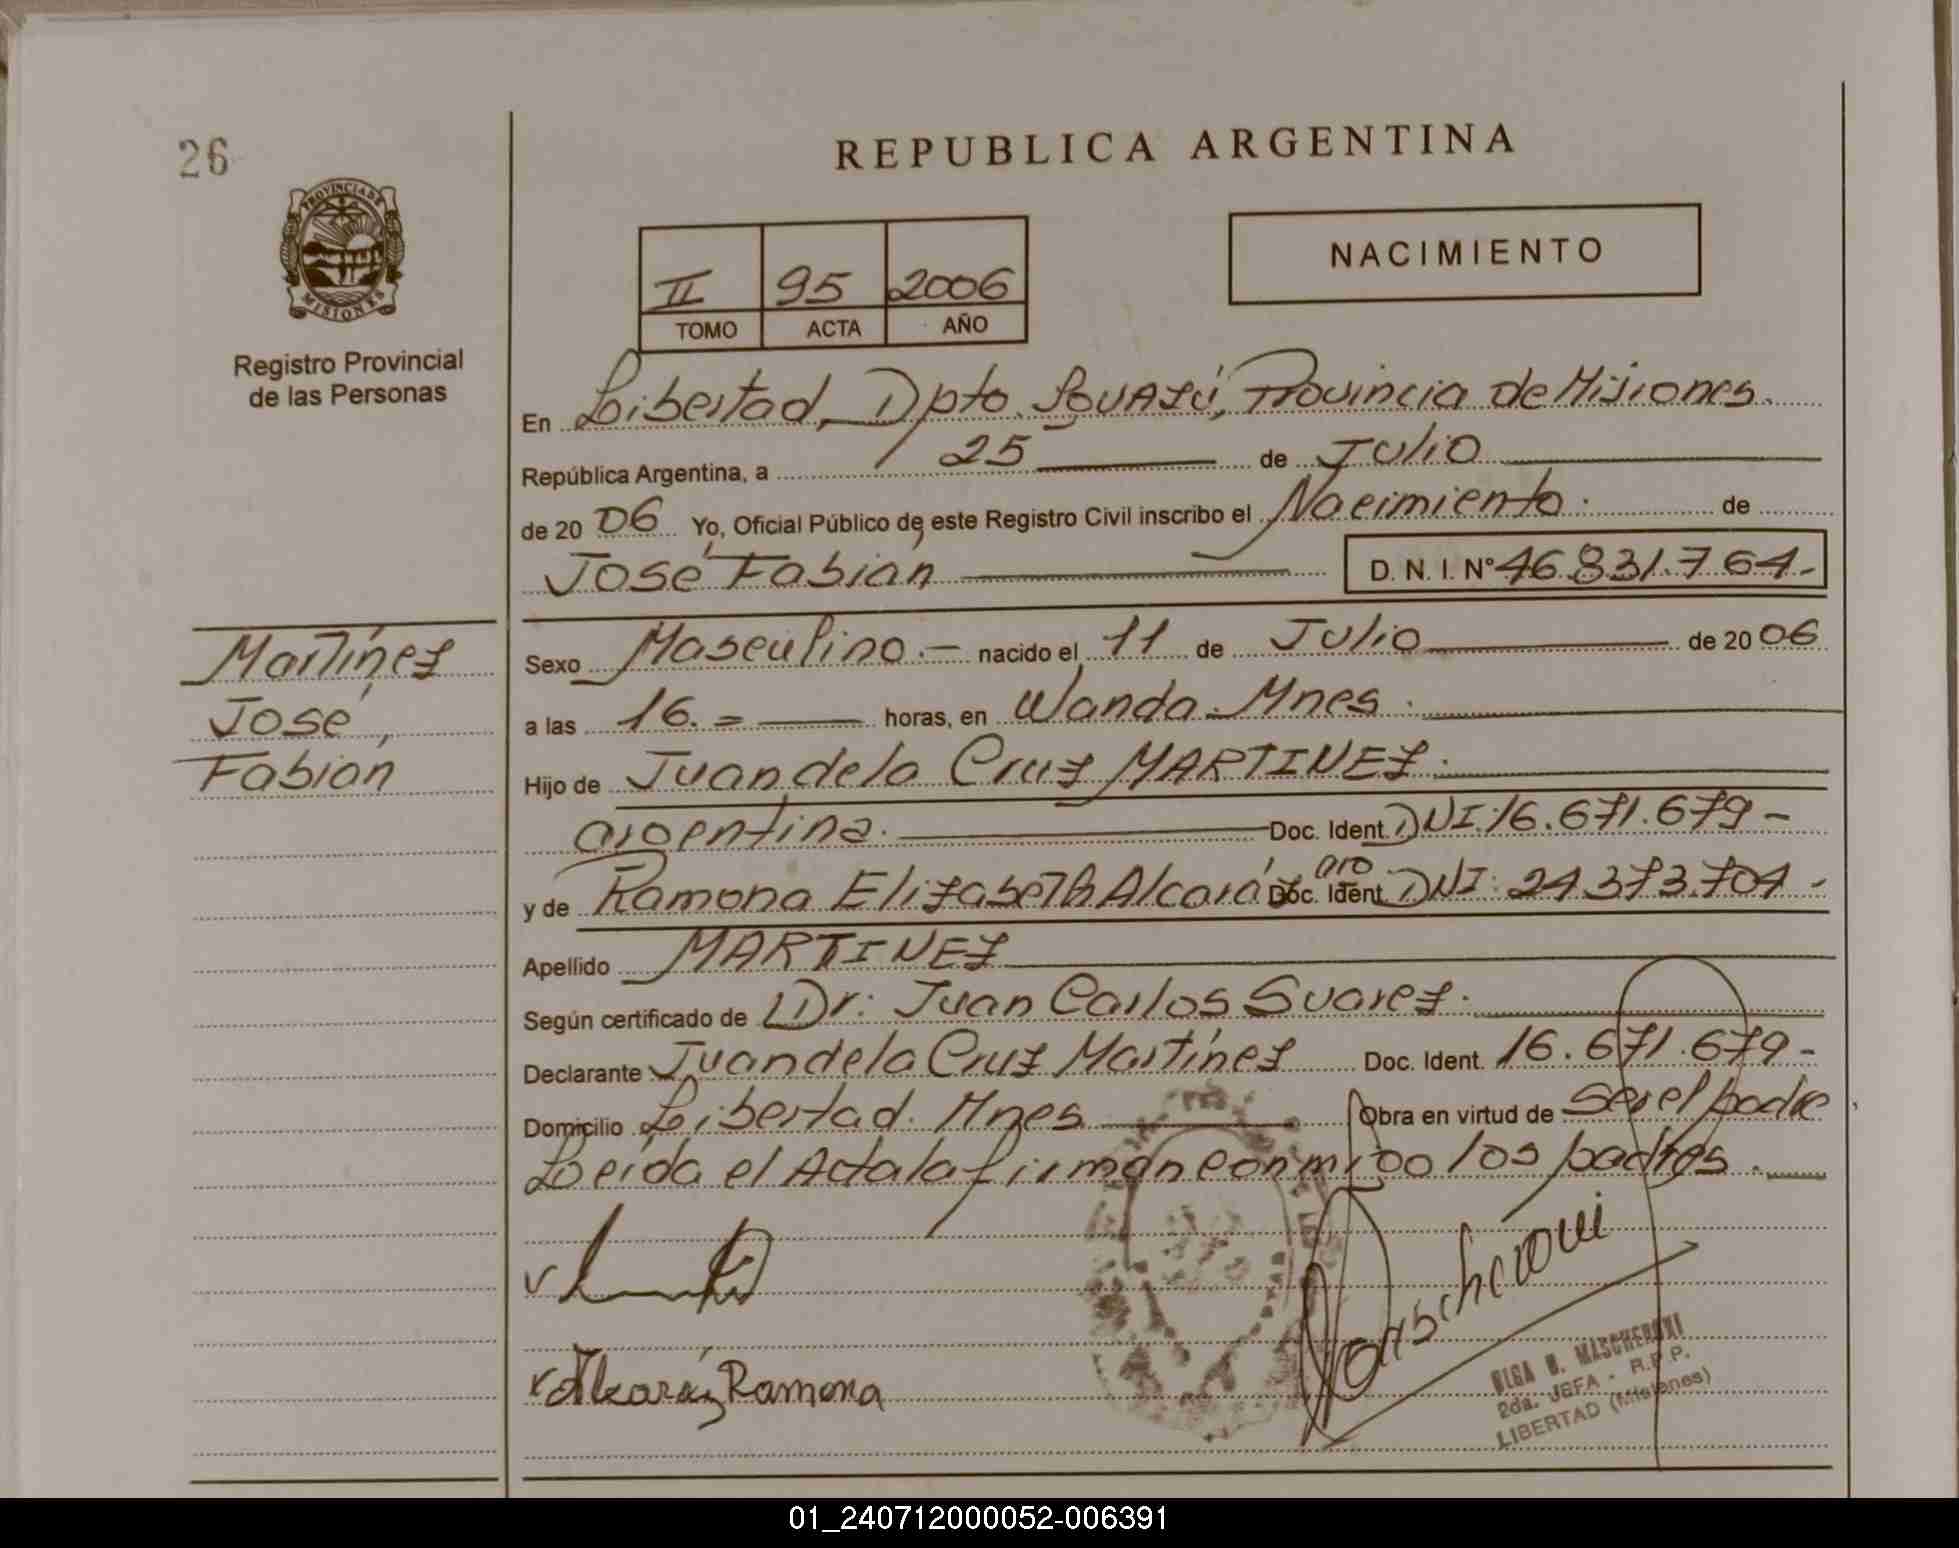 26
PROVINCIA DE
MISIONES
Registro Provincial
de las Personas
REPUBLICA ARGENTINA
II 95 2006
TOMO ACTA AÑO
NACIMIENTO
En Libertad, Dpto. Iguazú, Provincia de Misiones.
República Argentina, a 25 de Julio
de 20 06 Yo, Oficial Público de este Registro Civil inscribo el Nacimiento. de
José Fabián D. N. I. N° 46.831.764.-
Martínez
José,
Fabian
Sexo Masculino.- nacido el 11 de Julio de 20 06
a las 16.= horas, en Wanda. Mnes.
Hijo de Juan de la Cruz MARTINEZ.
argentina. Doc. Ident. DNI: 16.671.679-
y de Ramona Elizabeth Alcaráz arg Doc. Ident. DNI: 24.373.704-
Apellido MARTINEZ
Según certificado de Dr: Juan Carlos Suarez.
Declarante Juan de la Cruz Martínez Doc. Ident. 16.671.679-
Domicilio Libertad. Mnes Obra en virtud de ser el padre
Leída el Acta la firman conmigo los padres.
Alcaráz Ramona
Mascheroni
OLGA B. MASCHERONI
2da. JEFA - R.P.P.
LIBERTAD (Misiones)
01_240712000052-006391